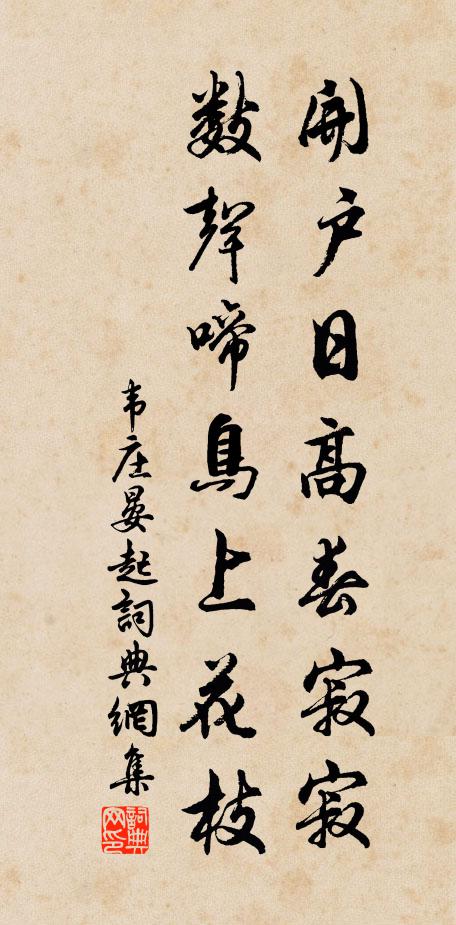 開户日高春寂寂
數聲啼鳥上花枝
韦庄晏起詞典網集
詞典网印